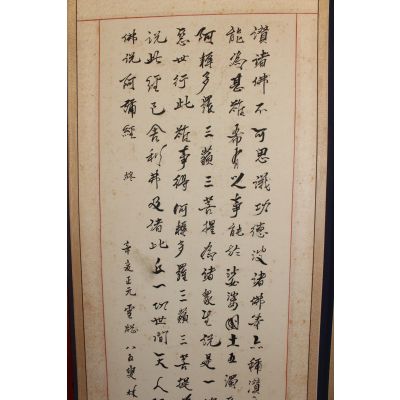 讚諸佛不可思議功德彼諸佛等亦稱讚
能為甚難希有之事能於娑婆國土五濁
阿耨多羅三藐三菩提為諸眾生說是一
惡世行此難事得阿耨多羅三藐三菩提
說此經已舍利弗及諸比丘一切世間天人
佛說阿彌經 終
辛亥正元 八百雙林